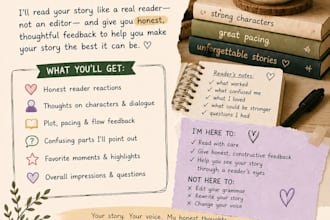 I'll read your story like a real reader—
not an editor— and give you honest,
thoughtful feedback to help you make
your story the best it can be. ♡
WHAT YOU'LL GET:
Honest reader reactions
Thoughts on characters & dialogue
Plot, pacing & flow feedback
Confusing parts I'll point out
Favorite moments & highlights
Overall impressions & questions
strong characters
great pacing
unforgettable stories ♡
Reader's notes:
✓ what worked
✓ what confused me
✓ what I loved
✓ what could be stronger
✓ questions I had
I'M HERE TO:
✓ Read with care
✓ Give honest, constructive feedback
✓ Help you see your story
through a reader's eyes
NOT HERE TO:
✗ Edit your grammar
✗ Rewrite your story
✗ Change your voice
Your story. Your voice. My honest thoughts.